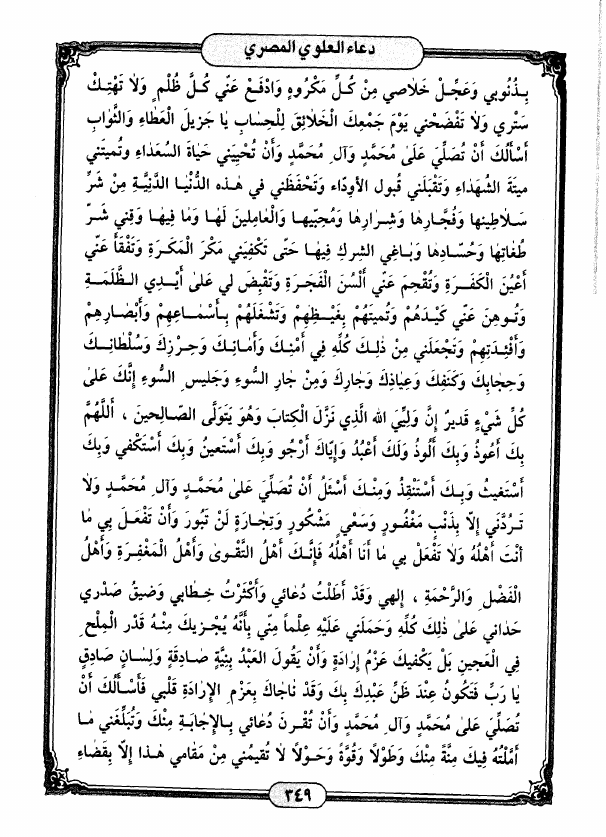 دعاء العلوي المصري
بِذُنُوبي وَعَجِّلْ خَلاٰصي مِنْ كُلِّ مَكْرُوهٍ وَادْفَعْ عَنّي كُلَّ ظُلْمٍ وَلاٰ تَهْتِكْ
سَتْري وَلاٰ تَفْضَحْني يَوْمَ جَمْعِكَ الْخَلاٰئِقَ لِلْحِسٰابِ يٰا جَزيلَ الْعَطٰاءِ وَالثَّوٰابِ
أَسْأَلُكَ أَنْ تُصَلِّيَ عَلىٰ مُحَمَّدٍ وَآلِ مُحَمَّدٍ وَأَنْ تُحْيِيَني حَيٰاةَ السُّعَدٰاءِ وَتُميتَني
ميتَةَ الشُّهَدٰاءِ وَتَقْبَلَني قَبُولَ الأوِدّٰاءِ وَتَحْفَظَني في هٰذِهِ الدُّنْيٰا الدَّنِيَّةِ مِنْ شَرِّ
سَلاٰطينِهٰا وَفُجّٰارِهٰا وَشِرٰارِهٰا وَمُحِبّيهٰا وَالْعٰامِلينَ لَهٰا وَمٰا فيهٰا وَقِني شَرَّ
طُغٰاتِهٰا وَحُسّٰادِهٰا وَبٰاغِي الشِركِ فيهٰا حَتّىٰ تَكْفِيَني مَكْرَ الْمَكَرَةِ وَتَفْقَأَ عَنّي
أَعْيُنَ الْكَفَرَةِ وَتُفْحِمَ عَنّي أَلْسُنَ الْفَجَرَةِ وَتَقْبِضَ لي عَلىٰ أَيْدِي الظَّلَمَةِ
وَتُوهِنَ عَنّي كَيْدَهُمْ وَتُميتَهُمْ بِغَيْظِهِمْ وَتَشْغَلَهُمْ بِأَسْمٰاعِهِمْ وَأَبْصٰارِهِمْ
وَأَفْئِدَتِهِمْ وَتَجْعَلَني مِنْ ذٰلِكَ كُلِّهِ في أَمْنِكَ وَأَمٰانِكَ وَحِرْزِكَ وَسُلْطٰانِكَ
وَحِجٰابِكَ وَكَنَفِكَ وَعِيٰاذِكَ وَجٰارِكَ وَمِنْ جٰارِ السُّوءِ وَجَليسِ السُّوءِ إِنَّكَ عَلىٰ
كُلِّ شَيْءٍ قَديرٌ إِنَّ وَلِيِّيَ الله الَّذي نَزَّلَ الْكِتٰابَ وَهُوَ يَتَوَلَّى الصّٰالِحينَ ، أَللّهُمَّ
بِكَ أَعُوذُ وَبِكَ أَلُوذُ وَلَكَ أَعْبُدُ وَإِيّٰاكَ أَرْجُو وَبِكَ أَسْتَعينُ وَبِكَ أَسْتَكْفي وَبِكَ
أَسْتَغيثُ وَبِكَ أَسْتَنْقِذُ وَمِنْكَ أَسْئَلُ أَنْ تُصَلِّيَ عَلىٰ مُحَمَّدٍ وَآلِ مُحَمَّدٍ وَلاٰ
تَرُدَّني إِلاّ بِذَنْبٍ مَغْفُورٍ وَسَعْيٍ مَشْكُورٍ وَتِجٰارَةٍ لَنْ تَبُورَ وَأَنْ تَفْعَلَ بي مٰا
أَنْتَ أَهْلُهُ وَلاٰ تَفْعَلْ بي مٰا أَنَا أَهْلُهُ فَإِنَّكَ أَهْلُ التَّقْوىٰ وَأَهْلُ الْمَغْفِرَةِ وَأَهْلُ
الْفَضْلِ وَالرَّحْمَةِ ، إِلٰهي وَقَدْ أَطَلْتُ دُعٰائي وَأَكْثَرْتُ خِطٰابي وَضيقُ صَدْري
حَدٰاني عَلىٰ ذٰلِكَ كُلِّهِ وَحَمَلَني عَلَيْهِ عِلْماً مِنّي بِأَنَّهُ يُجْزيكَ مِنْهُ قَدْرُ الْمِلْحِ
فِي الْعَجينِ بَلْ يَكْفيكَ عَزْمُ إِرٰادَةٍ وَأَنْ يَقُولَ الْعَبْدُ بِنِيَّةٍ صٰادِقَةٍ وَلِسٰانٍ صٰادِقٍ
يٰا رَبِّ فَتَكُونُ عِنْدَ ظَنِّ عَبْدِكَ بِكَ وَقَدْ نٰاجٰاكَ بِعَزْمِ الإِرٰادَةِ قَلْبي فَأَسْأَلُكَ أَنْ
تُصَلِّيَ عَلىٰ مُحَمَّدٍ وَآلِ مُحَمَّدٍ وَأَنْ تُقْرِنَ دُعٰائي بِالإِجٰابَةِ مِنْكَ وَتُبَلِّغَني مٰا
أَمَّلْتُهُ فيكَ مِنَّةً مِنْكَ وَطَوْلاً وَقُوَّةً وَحَوْلاً لاٰ تُقيمُني مِنْ مَقٰامي هٰذٰا إِلاّ بِقَضٰاءِ
٣٤٩